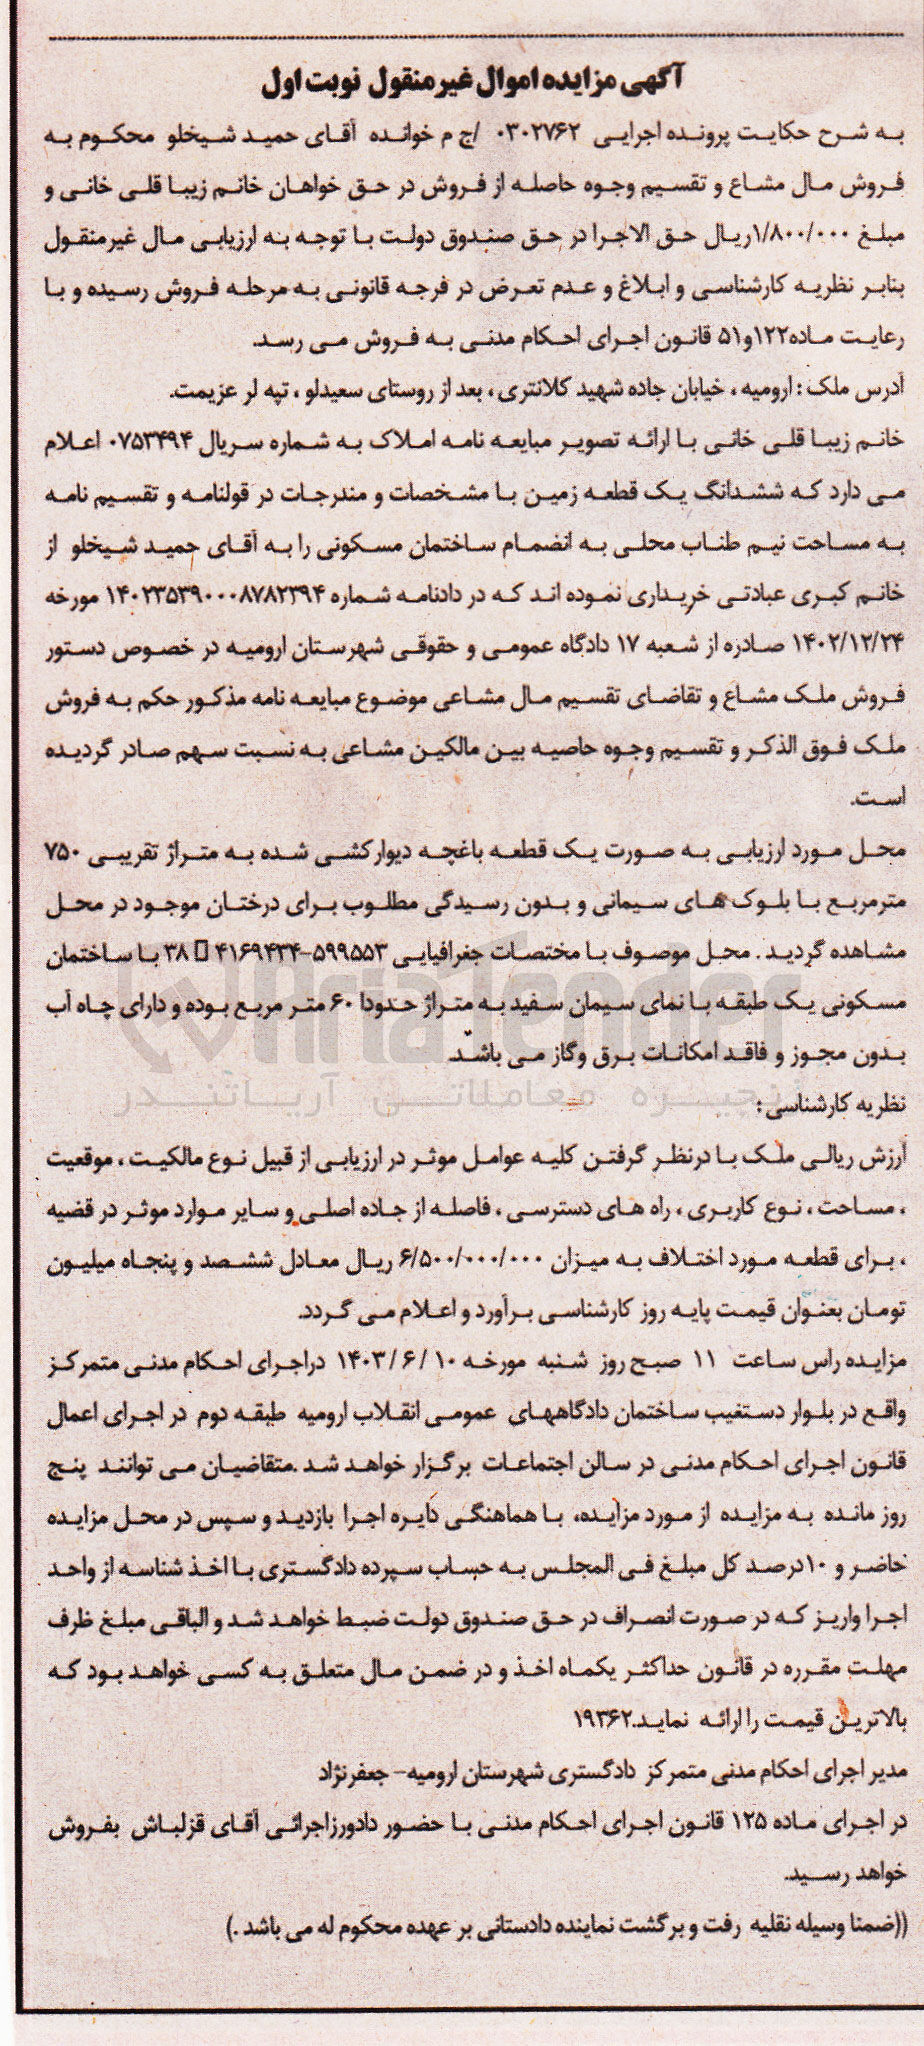 آگهی مزایده اموال غیر منقول نوبت اول
به شرح حکایت پرونده اجرایی ۰۳۰۲۷۶۲ /ج م خوانده آقای حمید شیخلو محکوم به
فروش مال مشاع و تقسیم وجوه حاصله از فروش در حق خواهان خانم زیبا قلی خانی و
مبلغ ۱/۸۰۰/۰۰۰ریال حق الاجرا در حق صندوق دولت با توجه به ارزیابی مال غیرمنقول
بنابر نظریه کارشناسی و ابلاغ و عدم تعرض در فرجه قانونی به مرحله فروش رسیده و با
رعایت ماده۱۲۲و۵۱ قانون اجرای احکام مدنی به فروش می رسد.
آدرس ملک : ارومیه ، خیابان جاده شهید کلانتری ، بعد از روستای سعیدلو ، تپه لر عزیمت.
خانم زیبا قلی خانی با ارائه تصویر مبایعه نامه املاک به شماره سریال ۰۷۵۳۴۹۴ اعلام
می دارد که ششدانگ یک قطعه زمین با مشخصات و مندرجات در قولنامه و تقسیم نامه
به مساحت نیم طناب محلی به انضمام ساختمان مسکونی را به آقای حمید شیخلو از
خانم کبری عبادتی خریداری نموده اند که در دادنامه شماره ۱۴۰۲۳۵۳۹۰۰۰۸۷۸۲۳۹۴ مورخه
۱۴۰۲/۱۲/۲۴ صادره از شعبه ۱۷ دادگاه عمومی و حقوقی شهرستان ارومیه در خصوص دستور
فروش ملک مشاع و تقاضای تقسیم مال مشاعی موضوع مبایعه نامه مذکور حکم به فروش
ملک فوق الذکر و تقسیم وجوه حاصیه بین مالکین مشاعی به نسبت سهم صادر گردیده
است.
محل مورد ارزیابی به صورت یک قطعه باغچه دیوارکشی شده به متراژ تقریبی ۷۵۰
مترمربع با بلوک های سیمانی و بدون رسیدگی مطلوب برای درختان موجود در محل
مشاهده گردید . محل موصوف با مختصات جغرافیایی ۵۹۹۵۵۳-۴۱۶۹۴۳۴ ▯ ۳۸ با ساختمان
مسکونی یک طبقه با نمای سیمان سفید به متراژ حدودا ۶۰ متر مربع بوده و دارای چاه آب
بدون مجوز و فاقد امکانات برق وگاز می باشد.
نظریه کارشناسی :
آرزش ریالی ملک با درنظر گرفتن کلیه عوامل موثر در ارزیابی از قبیل نوع مالکیت ، موقعیت
، مساحت ، نوع کاربری ، راه های دسترسی ، فاصله از جاده اصلی و سایر موارد موثر در قضیه
، برای قطعه مورد اختلاف به میزان ۶/۵۰۰/۰۰۰/۰۰۰ ریال معادل ششصد و پنجاه میلیون
تومان بعنوان قیمت پایه روز کارشناسی برآورد و اعلام می گردد.
مزایده راس ساعت ۱۱ صبح روز شنبه مورخه ۱۰ / ۶ / ۱۴۰۳ دراجرای احکام مدنی متمرکز
واقع در بلوار دستغیب ساختمان دادگاههای عمومی انقلاب ارومیه طبقه دوم در اجرای اعمال
قانون اجرای احکام مدنی در سالن اجتماعات برگزار خواهد شد .متقاضیان می توانند پنج
روز مانده به مزایده از مورد مزایده، با هماهنگی دایره اجرا بازدید و سپس در محل مزایده
حاضر و ۱۰درصد کل مبلغ فی المجلس به حساب سپرده دادگستری با اخذ شناسه از واحد
اجرا واریز که در صورت انصراف در حق صندوق دولت ضبط خواهد شد و الباقی مبلغ ظرف
مهلت مقرره در قانون حداکثر یکماه اخذ و در ضمن مال متعلق به کسی خواهد بود که
بالاترین قیمت را ارائه نماید.۱۹۳۶۲
مدیر اجرای احکام مدنی متمرکز دادگستری شهرستان ارومیه– جعفرنژاد
در اجرای ماده ۱۲۵ قانون اجرای احکام مدنی با حضور دادورزاجرائی آقای قزلباش بفروش
خواهد رسید.
((ضمنا وسیله نقلیه رفت و برگشت نماینده دادستانی بر عهده محکوم له می باشد .)
AriaTender
زنجیره معاملاتی آریاتندر